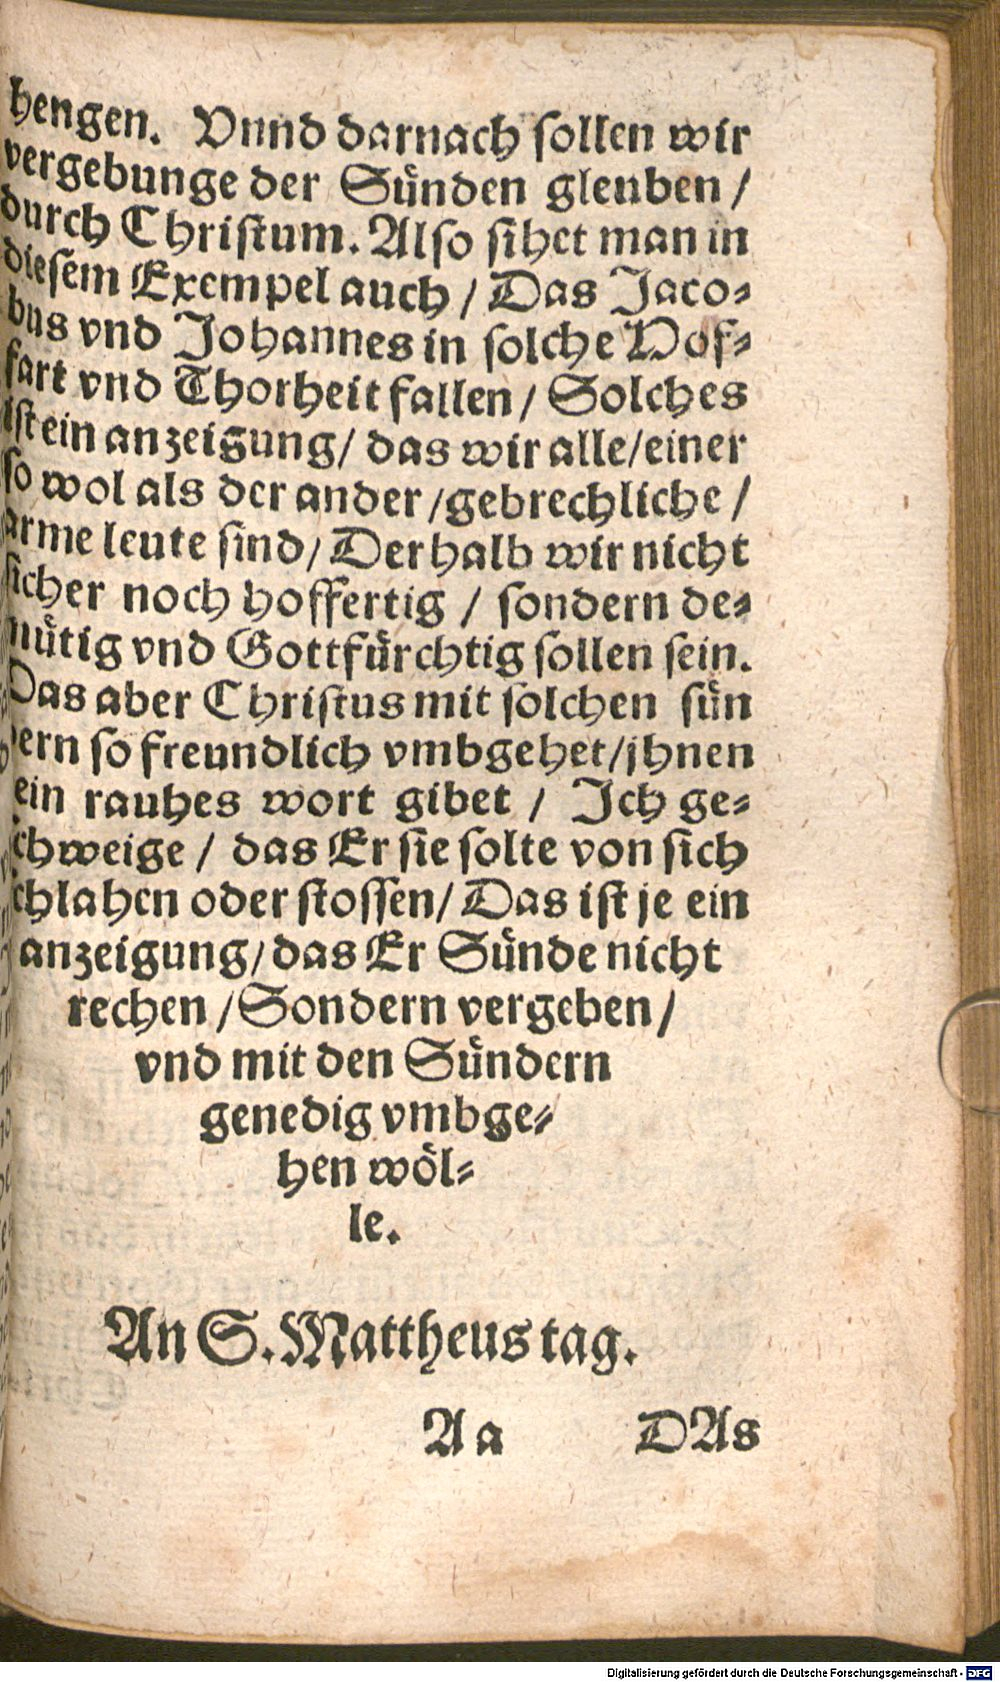 hengen. Vnnd darnach sollen wir
vergebunge der Sünden gleuben /
durch Christum. Also sihet man in
diesem Exempel auch / Das Jaco⸗
bus vnd Johannes in solche Hof⸗
fart vnd Thorheit fallen / Solches
ist ein anzeigung / das wir alle / einer
so wol als der ander / gebrechliche /
arme leute sind / Derhalb wir nicht
sicher noch hoffertig / sondern de⸗
mütig vnd Gottfürchtig sollen sein.
Das aber Christus mit solchen sün
dern so freundlich vmbgehet / jhnen
ein rauhes wort gibet / Ich ge⸗
schweige / das Er sie solte von sich
schlahen oder stossen / Das ist je ein
anzeigung / das Er Sünde nicht
rechen / Sondern vergeben /
vnd mit den Sündern
genedig vmbge⸗
hen wöl⸗
le.
An S. Mattheus tag.
Aa DAs
Digitalisierung gefördert durch die Deutsche Forschungsgemeinschaft - DFG